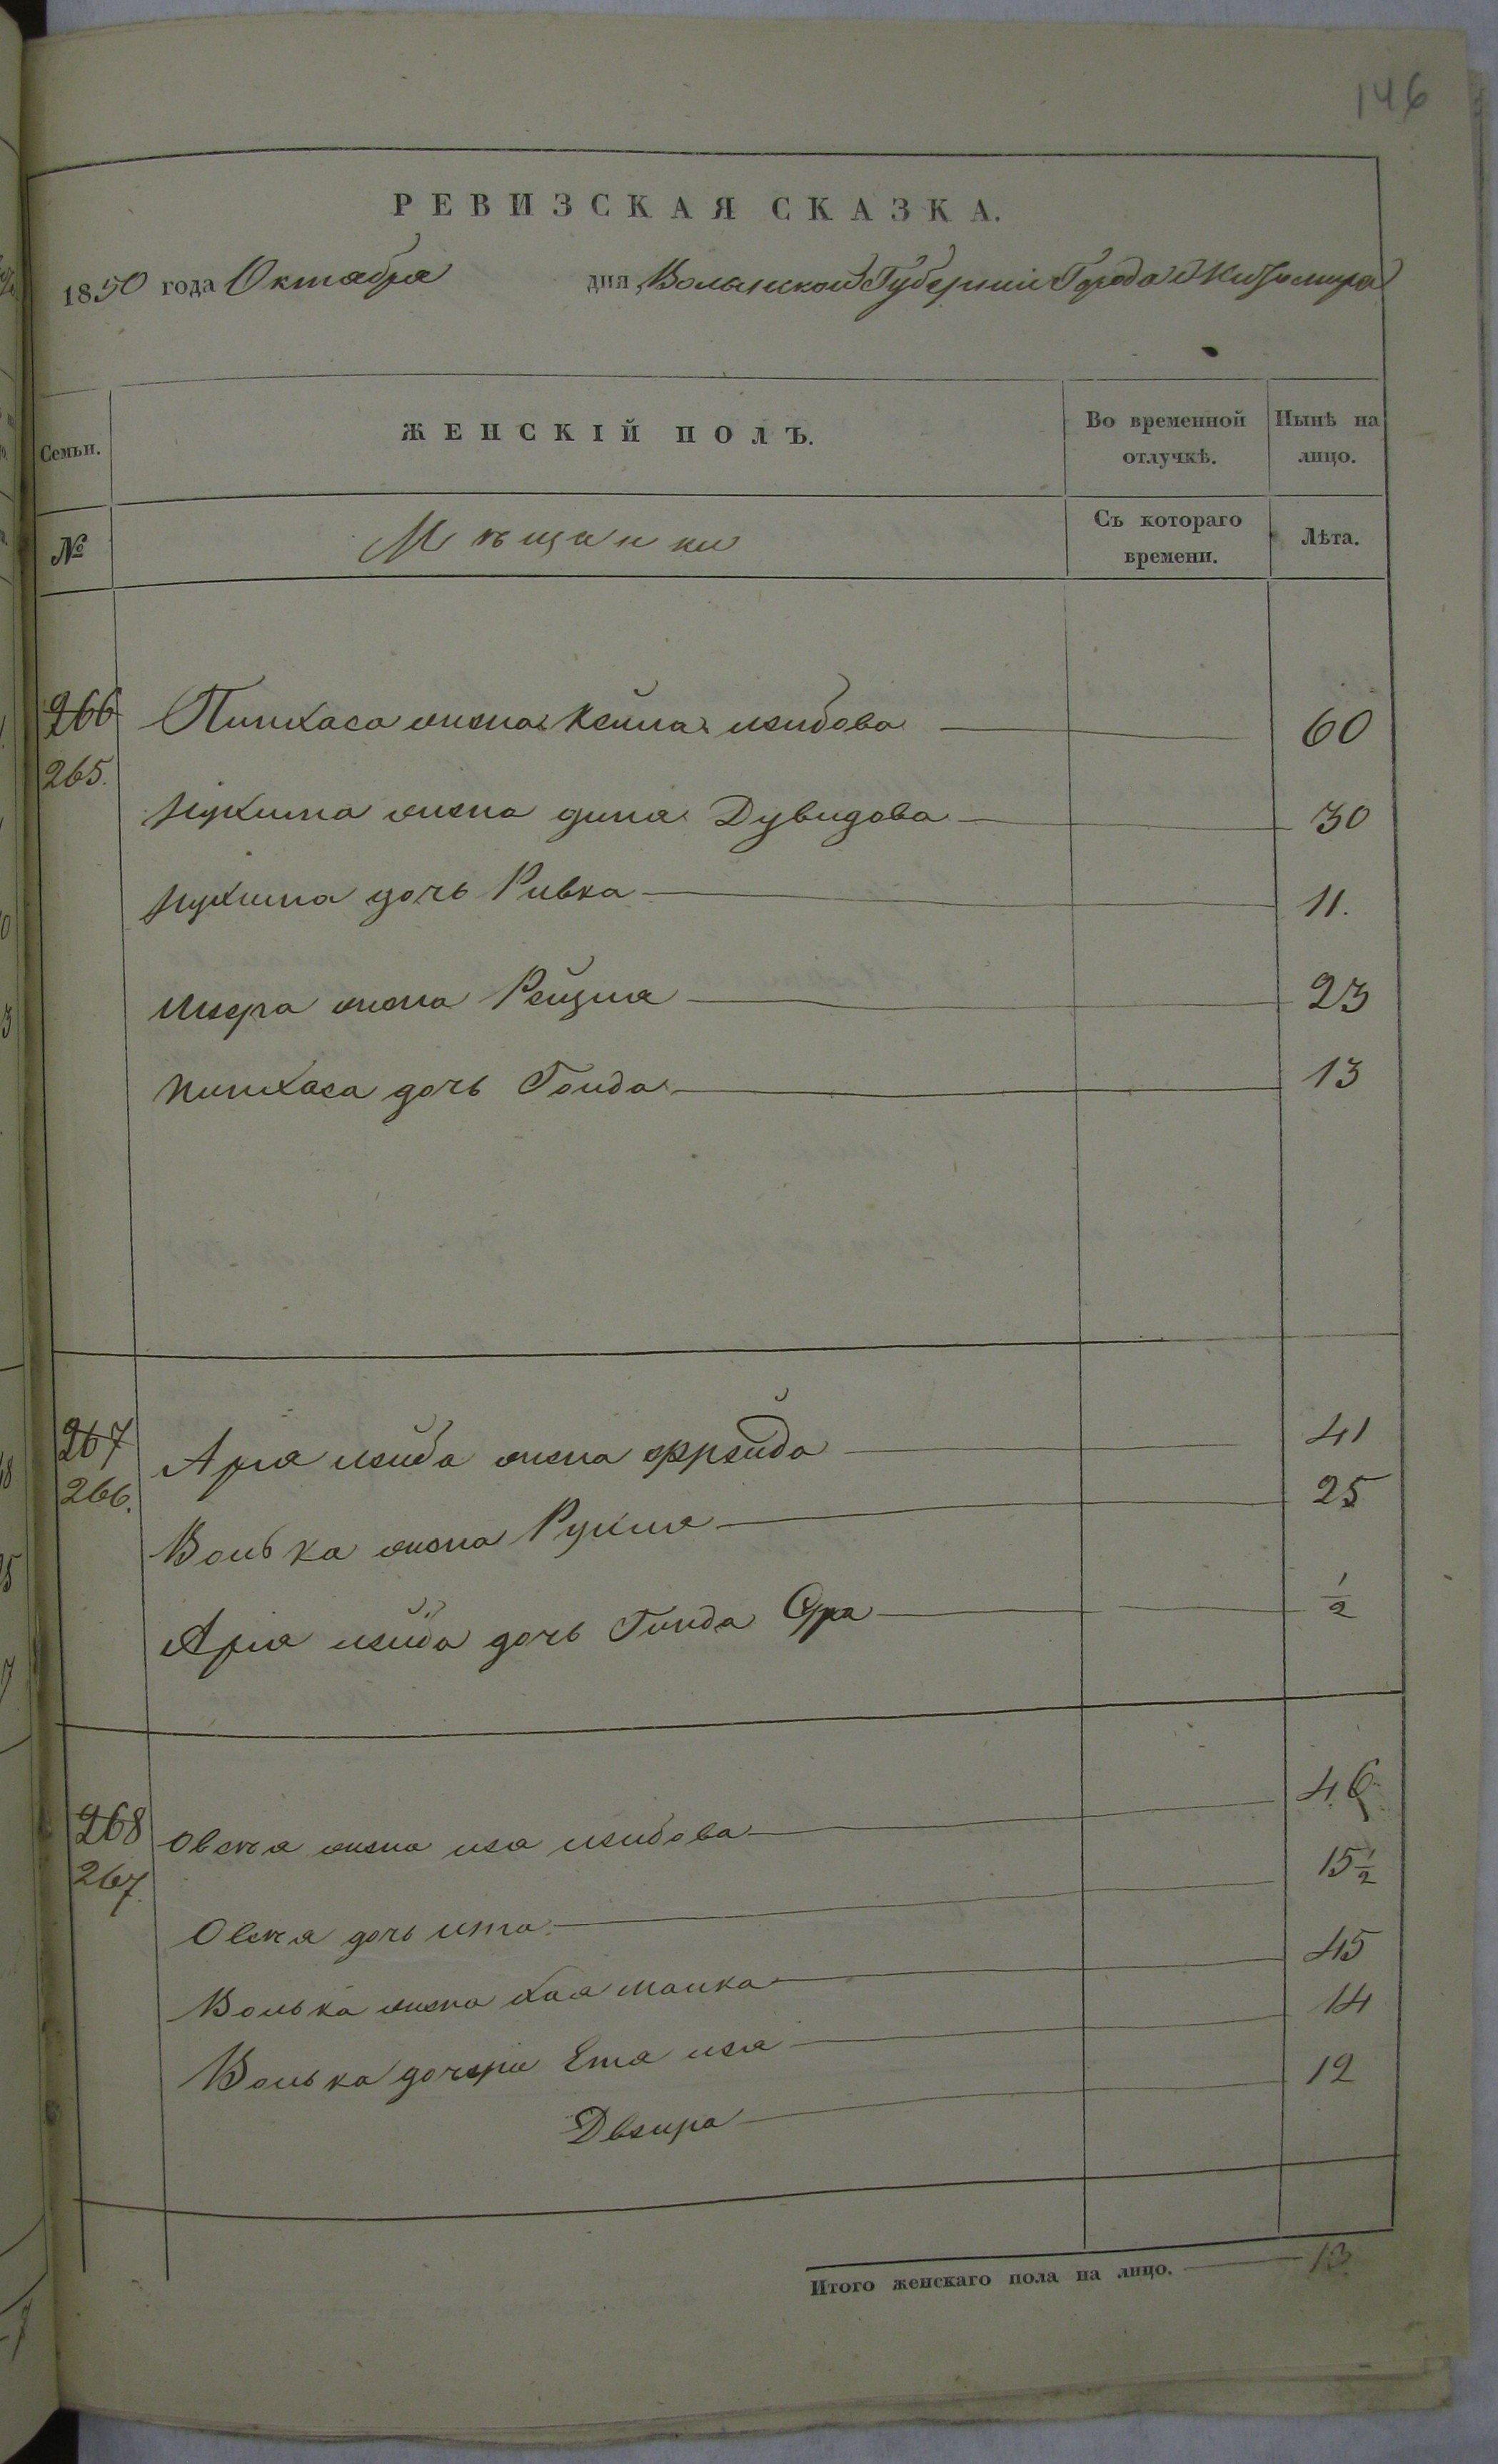 146
РЕВИЗСКАЯ СКАЗКА.
1850 года Октября дня, Волынской Губерніи Города Житомира
Семьи. ЖЕНСКІЙ ПОЛЪ. Во временной отлучкѣ. Нынѣ на лицо.
№ Мѣщанки Съ котораго времени. Лѣта.
266 Пинхаса жена Кейла лейбова 60
265.
Нухима жена дина Дувидова 30
Нухима дочь Ривка 11.
жена Рейзля 23
Пинхаса дочь Голда 13
267 Арія лейба жена Фрейда 41
266. Волька жена Рухля 25
Арія лейба дочь Голда Сура ½
268 Овсея жена лея лейбова 46
267. Овсея дочь ита 15½
Волька жена хая малка 45
Волька дочери Ета лея 14
Двейра 12
Итого женскаго пола на лицо. 13